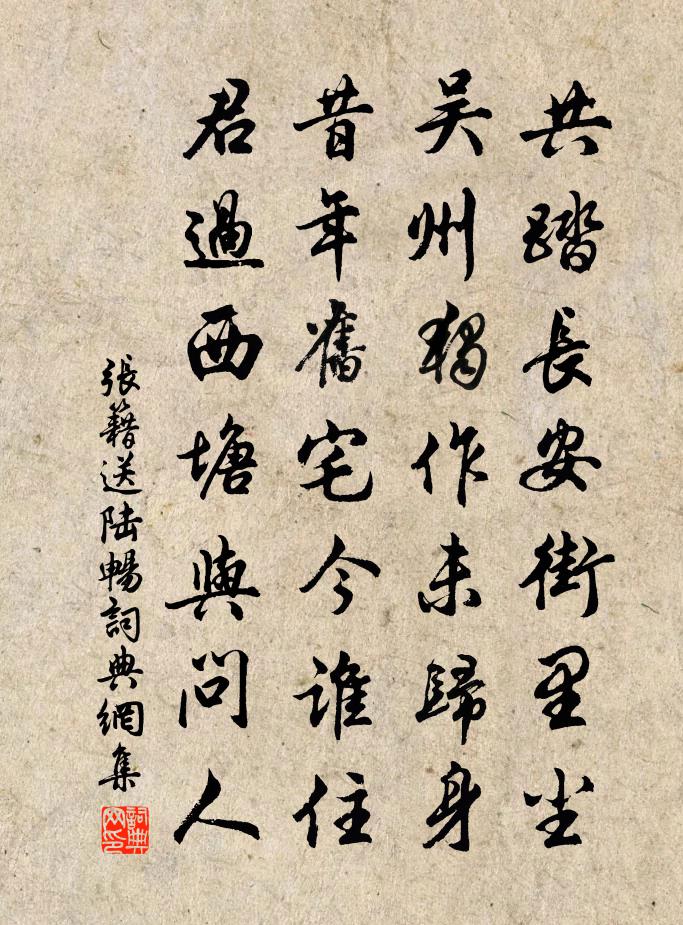 共踏長安街里尘
吴州獨作未歸身
昔年舊宅今誰住
君過西塘與問人
張籍送陆暢詞典網集
詞典网印